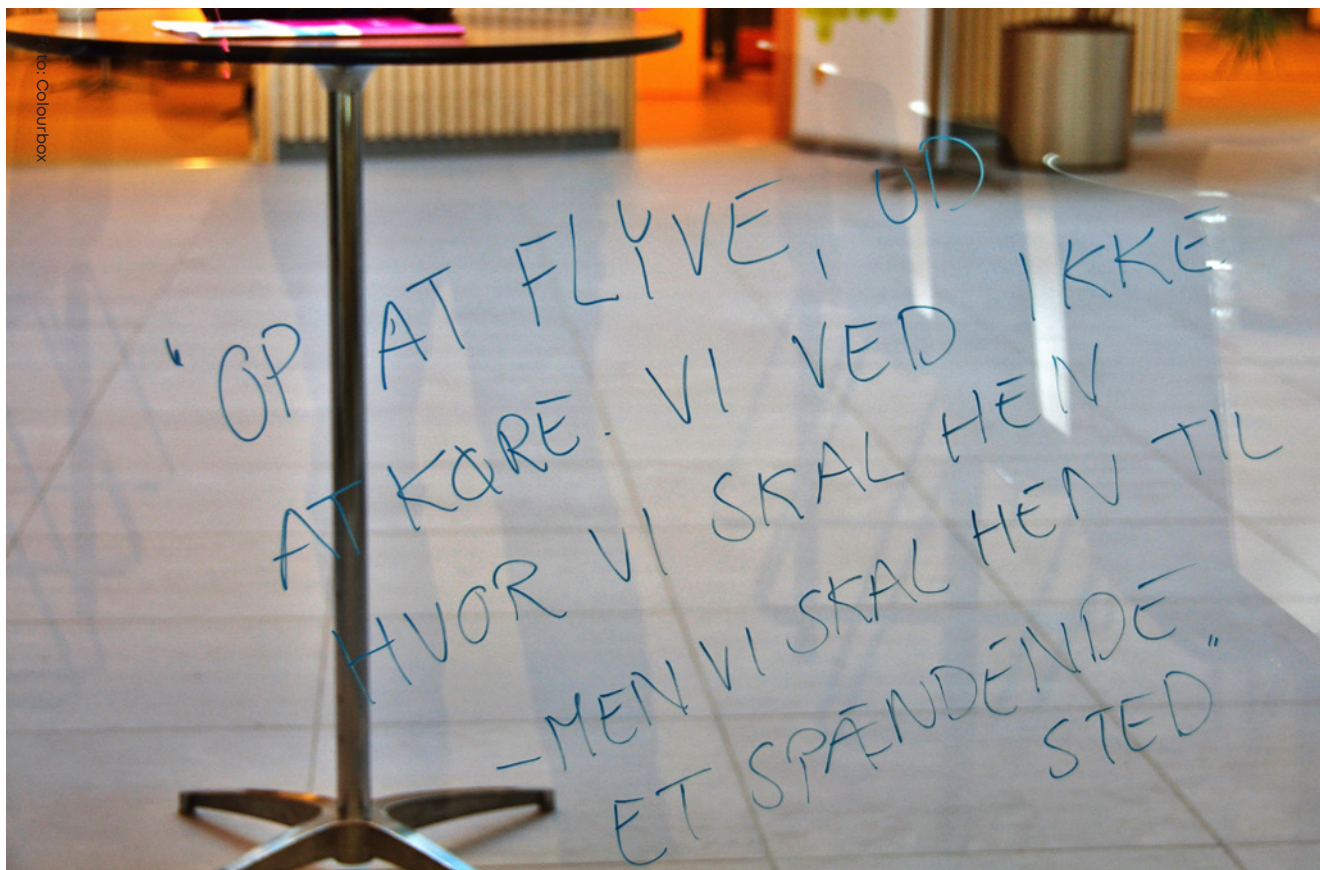 Foto: Colourbox
"OP AT FLYVE, UD
AT KØRE. VI VED IKKE
HVOR VI SKAL HEN
– MEN VI SKAL HEN TIL
ET SPÆNDENDE
STED"